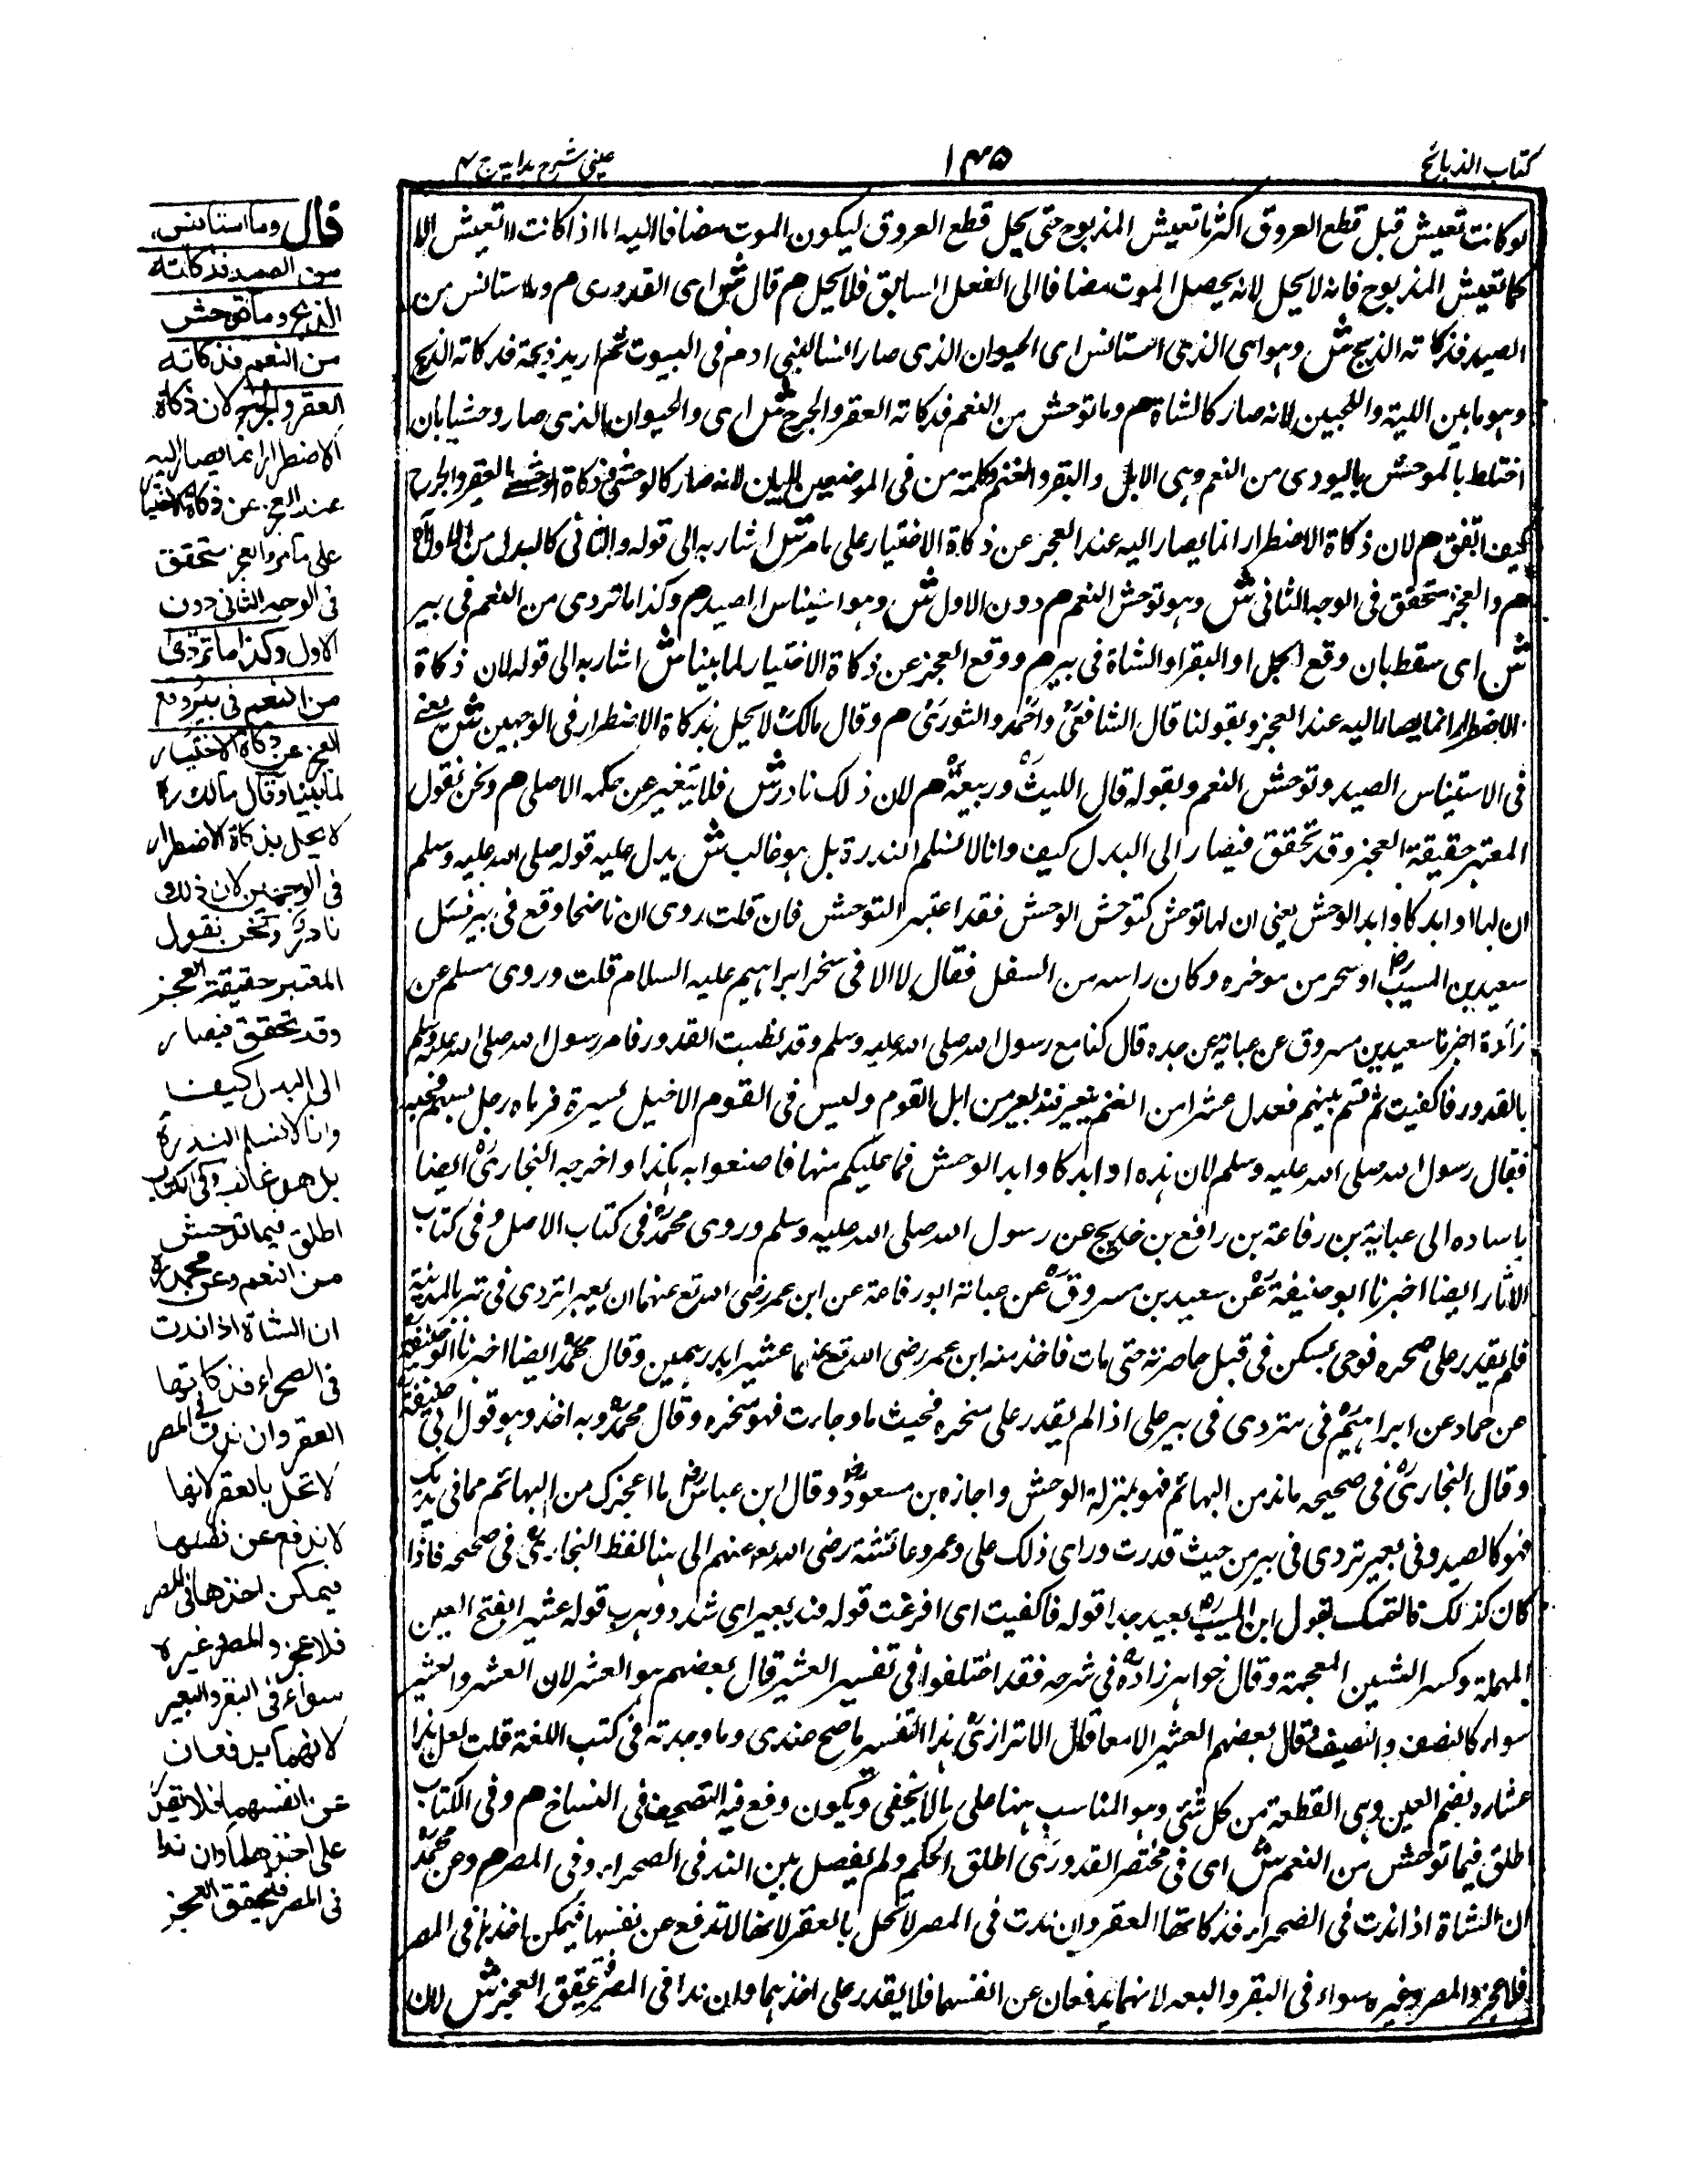 كتاب الذبائح
١٤٥
عينى شرح هداية ج ٤
لو كانت تعيش قبل قطع العروق اكثر ما تعيش المذبوح حتى يحل قطع العروق ليكون الموت مضافا اليه اما اذا كانت لا تعيش الا
كما تعيش المذبوح فانه لا يحل لانه يحصل الموت مضافا الى الفعل السابق فلا يحل هم قال ش اى القدورى م وما استانس من
الصيد فذكاته الذبح ش وهو اى الذى استانس اى الحيوان الذى صار انسا لبنى ادم فى البيوت ثم اريد ذبحة فذكاته الذبح
وهو ما بين اللبة واللحيين لانه صار كالشاة هم وما توحش من النعم فذكاته العقر والجرح ش اى والحيوان الذى صار وحشيا بان
اختلط بالموحش من النعم وهى الابل والبقر والغنم وكلمة من فى الموضعين للبيان لانه صار كالوحشى فذكاة الوحشى بالعقر والجرح
كيف اتفق هم لان ذكاة الاضطرار انما يصار اليه عند العجز عن ذكاة الاختيار على ما مر ش اشار به الى قوله والثانى كالبدل من الاول
هم والعجز متحقق فى الوجه الثانى ش وهو توحش النعم هم دون الاول ش وهو استيناس الصيد هم وكذا ما تردى من النعم فى بير
ش اى سقط بان وقع الجمل او البقر او الشاة فى بير هم ووقع العجز عن ذكاة الاختيار لما بينا ش اشار به الى قوله لان ذكاة
الاضطرار انما يصار اليه عند العجز وبقولنا قال الشافعى واحمد والثورى هم وقال مالك لا يحل بذكاة الاضطرار فى الوجهين ش يعنى
فى الاستيناس الصيد وتوحش النعم وبقوله قال الليث وربيعة هم لان ذلك نادر ش فلا يتغير عن حكمه الاصلى هم ونحن نقول
المعتبر حقيقة العجز وقد تحقق فيصار الى البدل كيف وانا لا نسلم الندرة بل هو غالب ش يدل عليه قوله صلى الله عليه وسلم
ان لها اوابد كاوابد الوحش يعنى ان لها توحش كتوحش الوحش فقد اعتبر التوحش فان قلت روى ان ناضحا وقع فى بير فسئل
سعيد بن المسيب اونحر من موخره وكان راسه من السفل فقال لا الا فى منحر ابراهيم عليه السلام قلت وروى مسلم عن
زائدة اخبرنا سعيد بن مسروق عن عباية عن جده قال كنا مع رسول الله صلى الله عليه وسلم وقد نصبت القدور فامر رسول الله صلى الله عليه وسلم
بالقدور فاكفيت ثم قسم بينهم فعدل عشرا من الغنم ببعير فند بعير من ابل القوم وليس فى القوم الا خيل يسيرة فرماه رجل بسهم فحبسه
فقال رسول الله صلى الله عليه وسلم ان هذه اوابد كاوابد الوحش فما غلبكم منها فاصنعوا به هكذا واخرجه البخارى ايضا
باسناده الى عباية بن رفاعة بن رافع بن خديج عن رسول الله صلى الله عليه وسلم وروى محمد فى كتاب الاصل وفى كتاب
الاثار ايضا اخبرنا ابو حنيفة عن سعيد بن مسروق عن عباية بن رفاعة عن ابن عمر رضى الله تع عنهما ان بعيرا تردى فى بير بالمدينة
فلم يقدر على نحره فوجى بسكن فى قبل خاصرته حتى مات فاخذ منه ابن عمر رضى الله تع عنهما عشيرا بدرهمين وقال محمد ايضا اخبرنا ابو حنيفة
عن حماد عن ابراهيم فى متردى فى بير على اذا لم يقدر على منحره فحيث ما وجاءت فهو منحره وقال محمد وبه اخذ وهو قول ابى حنيفة
وقال البخارى فى صحيحه ما ند من البهائم فهو بمنزلة الوحش واجازه بن مسعود وقال ابن عباس ما اعجزك من البهائم مما فى يديك
فهو كالصيد وفى بعير تردى فى بير من حيث قدرت وراى ذلك على وعمر وعائشة رضى الله تع عنهم الى هنا لفظ البخارى فى صحيحه فاذا
كان كذلك فالتمسك بقول ابن المسيب بعيد جدا قوله فاكفيت اى افرغت قوله فند بعير اى شرد وهرب قوله عشيرا بفتح العين
المهملة وكسر الشين المعجمة وقال خواهر زاده فى شرحه فقد اختلفوا فى تفسير العشير قال بعضهم هو العشر لان العشر والعشير
سواء كالنصف والنصيف وقال بعضهم العشير الامعا قال الاترازى هذا التفسير ما صح عندى وما وجدته فى كتب اللغة قلت لعل هذا
عشاره بضم العين وهى القطعة من كل شئ وهو المناسب هنا على ما لا يخفى ويكون وقع فيه التصحيف فى النساخ هم وفى الكتاب
اطلق فيما توحش من النعم ش اى فى مختصر القدورى اطلق الحكم ولم يفصل بين الند فى الصحراء وفى المصر هم وعن محمد
ان الشاة اذا ندت فى الصحراء فذكاتها العقر وان ندت فى المصر لا تحل بالعقر لانها لا تدفع عن نفسها فيمكن اخذها فى المصر
فلا عجز والمصر وغيره سواء فى البقر والبعير لانهما يدفعان عن انفسهما فلا يقدر على اخذهما وان ندا فى المصر فيتحقق العجز ش لان
قال وما استانس
من الصيد فذكاته
الذبح وما توحش
من النعم فذكاته
العقر والجرح لان ذكاة
الاضطرار انما يصار اليه
عند العجز عن ذكاة الاختيار
على ما مر والعجز متحقق
فى الوجه الثانى دون
الاول وكذا ما تردى
من النعم فى بير ووقع
العجز عن ذكاة الاختيار
لما بينا وقال مالك ره
لا يحل بذكاة الاضطرار
فى الوجهين لان ذلك
نادر ونحن نقول
المعتبر حقيقة العجز
وقد تحقق فيصار
الى البدل كيف
وانا لا نسلم الندرة
بل هو غالب وفى الكتاب
اطلق فيما توحش
من النعم وعن محمد ره
ان الشاة اذا ندت
فى الصحراء فذكاتها
العقر وان ندت فى المصر
لا تحل بالعقر لانها
لا تدفع عن نفسها
فيمكن اخذها فى المصر
فلا عجز والمصر وغيره
سواء فى البقر والبعير
لانهما يدفعان
عن انفسهما فلا يقدر
على اخذهما وان ندا
فى المصر فيتحقق العجز